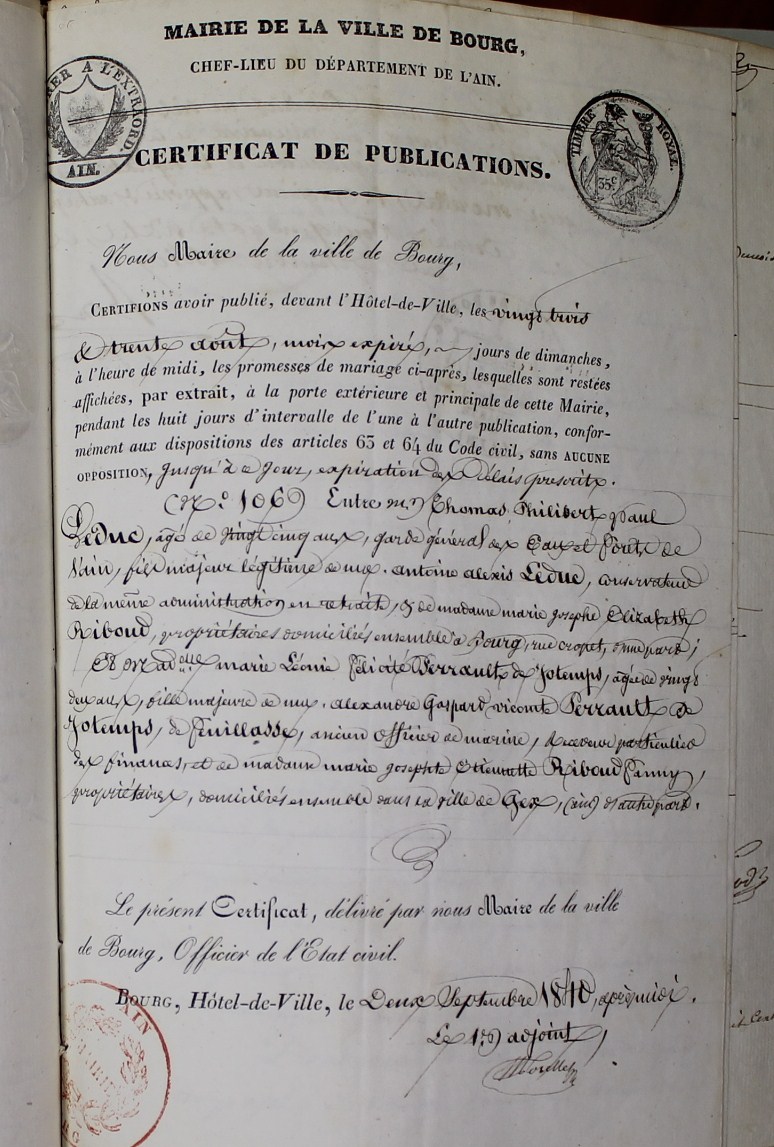 MAIRIE DE LA VILLE DE BOURG,
CHEF-LIEU DU DÉPARTEMENT DE L'AIN.
TIMBRE ROYAL.
35c
AIN.
CERTIFICAT DE PUBLICATIONS.
Nous Maire de la ville de Bourg,
CERTIFIONS avoir publié, devant l'Hôtel-de-Ville, les vingt trois
& trente août, mois expiré, jours de dimanches,
à l'heure de midi, les promesses de mariage ci-après, lesquelles sont restées
affichées, par extrait, à la porte extérieure et principale de cette Mairie,
pendant les huit jours d'intervalle de l'une à l'autre publication, confor-
mément aux dispositions des articles 63 et 64 du Code civil, sans AUCUNE
OPPOSITION, jusqu'à ce jour, expiration des délais prescrits.
(No. 106) Entre mr. Thomas Philibert paul
Leduc, agé de vingt cinq ans, garde général des Eaux et Forêts de
l'ain, fils majeur légitime de mr. antoine alexis Leduc, conservateur
de la même administration en retraite, & de madame marie josephe Elizabeth
Riboud, propriétaires domiciliés ensemble à Bourg, rue cropet, d'une part;
Et Madelle marie Léonie félicité Perrault de Jotemps, agée de vingt
deux ans, fille majeure de mr. alexandre Gaspard vicomte Perrault de
Jotemps, de feuillasse, ancien officier de marine, Receveur particulier
des finances, et de madame marie josephte Etiennette Riboud fanny,
propriétaires, domiciliés ensemble dans la ville de Gex, (ain) d'autre part.
Le présent Certificat, délivré par nous Maire de la ville
de Bourg, Officier de l'Etat civil.
BOURG, Hôtel-de-Ville, le Deux Septembre 1840, après midi.
Le 1er adjoint,